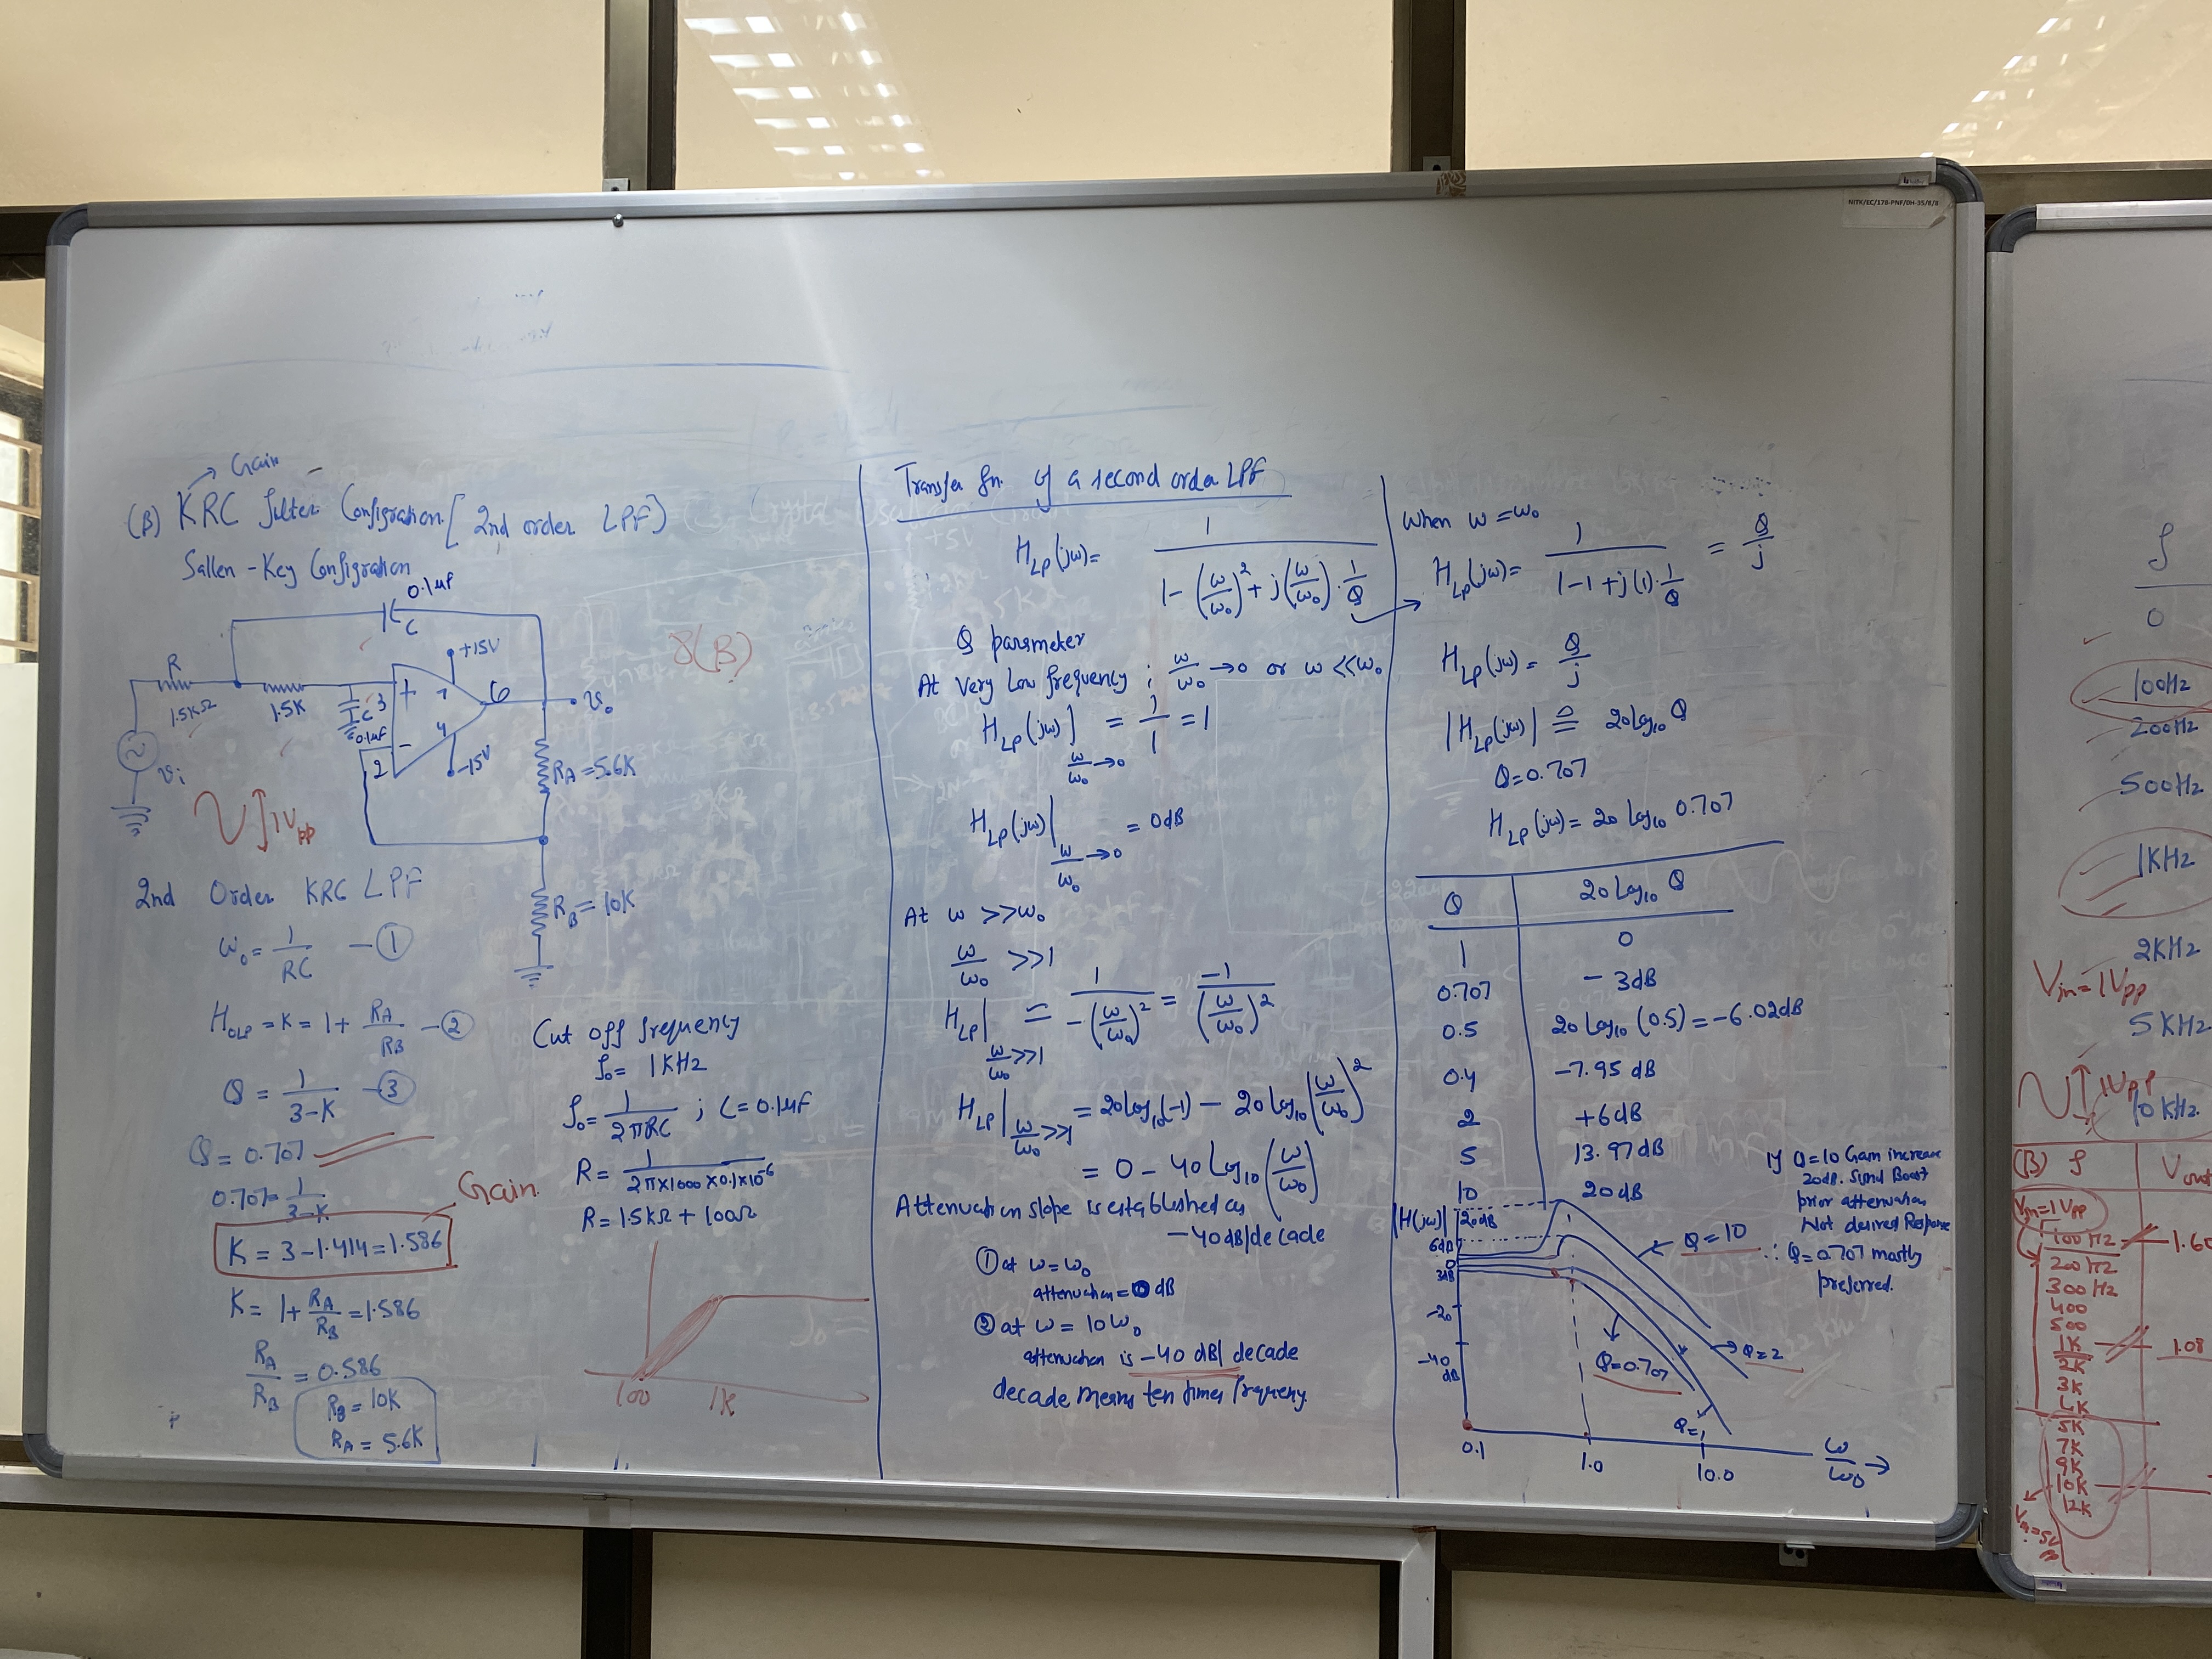 NITK/EC/178-PNF/0H-35/8/8
→ Gain
(B) KRC filter Configration [2nd order LPF)
Sallen-Key Configration
0.1μF
C
R
1.5KΩ
1.5K
C
0.1μF
3
+
7
+15V
6
vo
2
-
4
-15V
vi
1Vpp
RA=5.6K
RB=10K
8(B)
2nd Order KRC LPF
ω₀ = 1/RC - ①
HOLP = K = 1 + RA/RB - ②
Q = 1/(3-K) - ③
Q = 0.707
0.707 = 1/(3-K)
Gain
K = 3-1.414 = 1.586
K = 1 + RA/RB = 1.586
RA/RB = 0.586
RB = 10K
RA = 5.6K
Cut off frequency
f₀ = 1KHz
f₀ = 1/2πRC ; C = 0.1μF
R = 1/(2π×1000×0.1×10⁻⁶)
R = 1.5KΩ + 100Ω
100 1K
Transfer fn. of a second order LPF
HLP(jω) = 1/(1-(ω/ω₀)² + j(ω/ω₀)·1/Q)
Q parameter
At Very Low frequency ; ω/ω₀ → 0 or ω << ω₀
HLP(jω)] ω/ω₀→0 = 1/1 = 1
HLP(jω)| ω/ω₀→0 = 0dB
At ω >> ω₀
ω/ω₀ >> 1
HLP| ω/ω₀>>1 = 1/-(ω/ω₀)² = -1/(ω/ω₀)²
HLP| ω/ω₀>>1 = 20log₁₀(-1) - 20log₁₀(ω/ω₀)²
= 0 - 40 Log₁₀(ω/ω₀)
Attenuation slope is established as
-40dB/decade
① at ω = ω₀
attenuation = 0 dB
② at ω = 10ω₀
attenuation is -40 dB/decade
decade means ten times frequency
When ω = ω₀
HLP(jω) = 1/(1-1+j(1)·1/Q) = Q/j
HLP(jω) = Q/j
|HLP(jω)| = 20log₁₀ Q
Q = 0.707
HLP(jω) = 20 Log₁₀ 0.707
Q 20Log₁₀ Q
1 0
0.707 -3dB
0.5 20Log₁₀(0.5) = -6.02dB
0.4 -7.95 dB
2 +6dB
5 13.97dB
10 20dB
If Q=10 Gain increase
20dB.
Boost
prior attenuation
Not desired Response
∴ Q=0.707 mostly
preferred.
|H(jω)|
20dB
6dB
0
3dB
-20
-40
dB
Q=10
Q=2
Q=0.707
Q=1
0.1
1.0
10.0
ω/ω₀ →
f
0
100Hz
200Hz
500Hz
1KHz
2KHz
Vin=1Vpp
5KHz
1Vpp
10KHz
(B) f
Vin=1Vpp
100Hz
200Hz
300Hz
400
500
1K 1.08
2K
3K
4K
5K
7K
9K
10K
12K